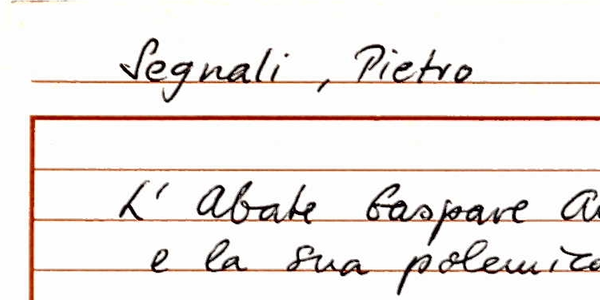 Segnali, Pietro
L' Abate Gaspare
e la sua